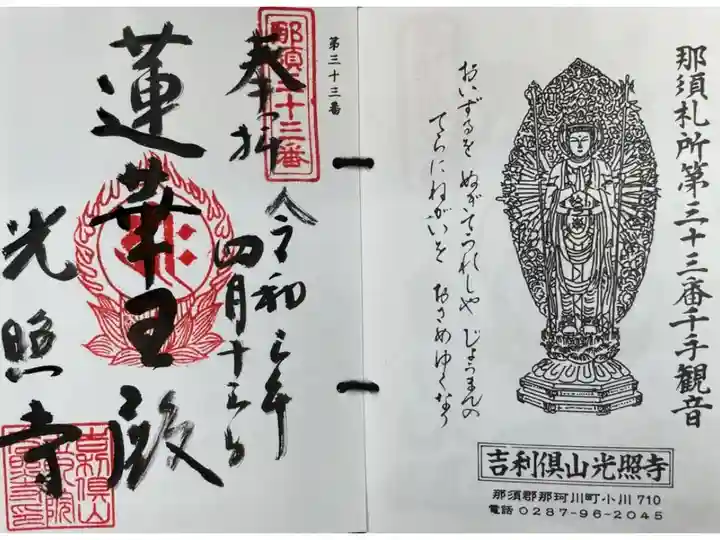 那須札所第三十三番千手観音
おいずるを ぬぎてうれしや じょうまんの
てらにねがいを おさめゆくなり
吉利倶山光照寺
那須郡那珂川町小川710
電話 0287-96-2045
第三十三番
那須三十三番
奉拝
令和
四月十三日
蓮華王殿
光照寺